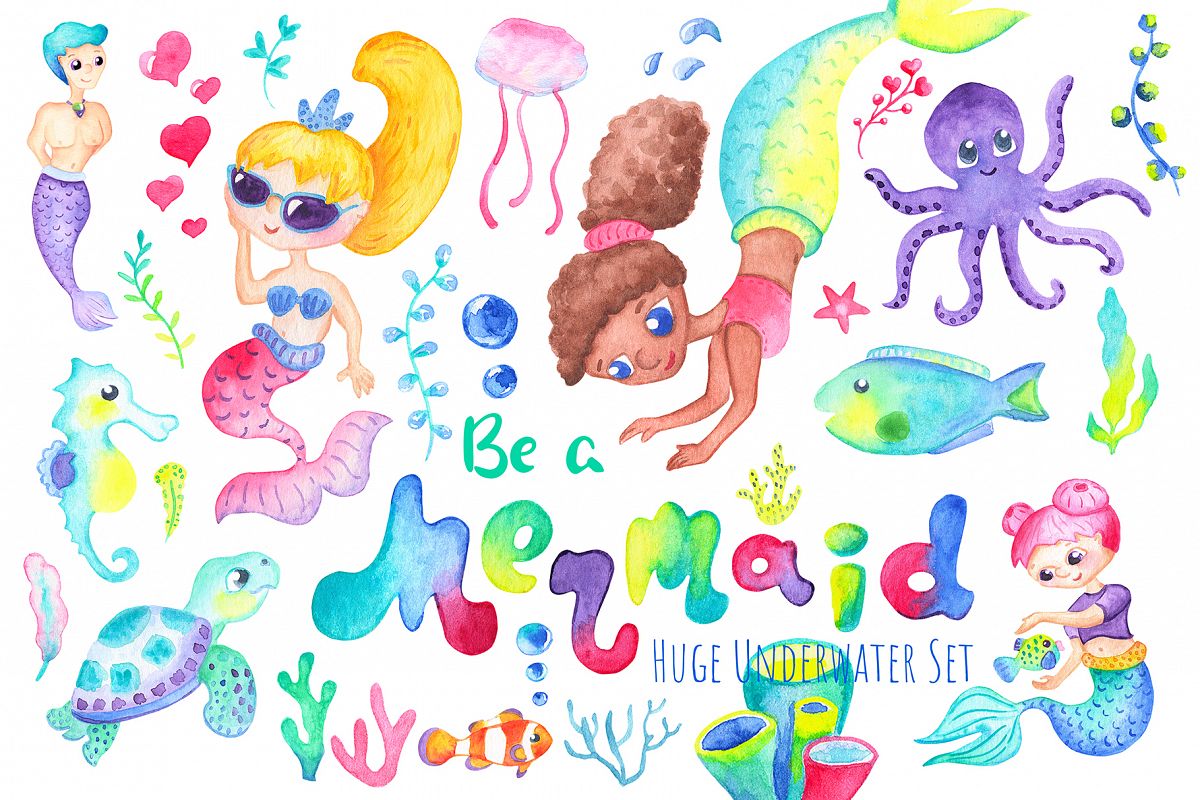 Be a
mermaid
Huge Underwater Set